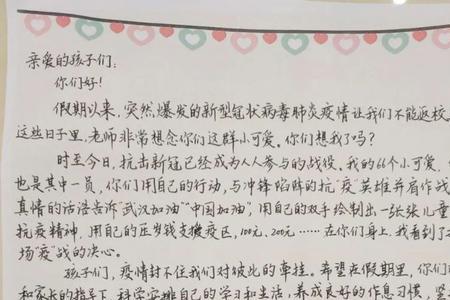 亲爱的孩子们：
你们好！
假期以来，突然爆发的新型冠状病毒肺炎疫情让我们不能返校
这些日子里，老师非常想念你们这群小可爱。你们想我了吗？
时至今日，抗击新冠已经成为人人参与的战役。我的66个小可爱，
也是其中一员，你们用自己的行动，与冲锋陷阵的抗“疫”英雄并肩作战
真情的话语告诉“武汉加油”“中国加油”，用自己的双手绘制出一张张儿童
抗疫精神，用自己的压岁钱支援疫区，100元、200元……在你们身上，我看到了
场“疫”战的决心。
孩子们，疫情封不住我们对彼此的牵挂。希望在假期里，你们
和家长的指导下，科学安排自己的学习和生活，养成良好的作息习惯，坚